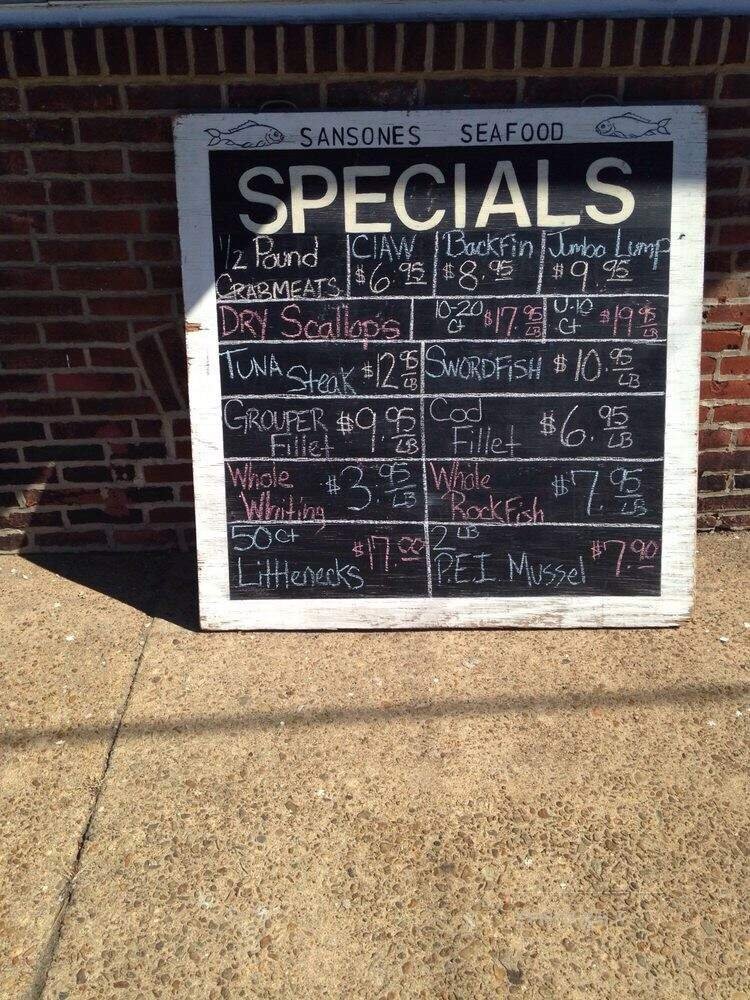 SANSONES SEAFOOD
SPECIALS
1/2 Pound CRABMEATS
ClAW $6.95
Backfin $8.95
Jumbo Lump $9.95
DRY Scallops
10-20 ct $17.95 LB
U-10 ct $19.95 LB
TUNA Steak $12.95 LB
SWORDFISH $10.95 LB
GROUPER Fillet $9.95 LB
Cod Fillet $6.95 LB
Whole Whiting $3.95 LB
Whole RockFish $7.95 LB
50 ct Littlenecks $17.00
2 LB P.E.I. Mussel $7.90